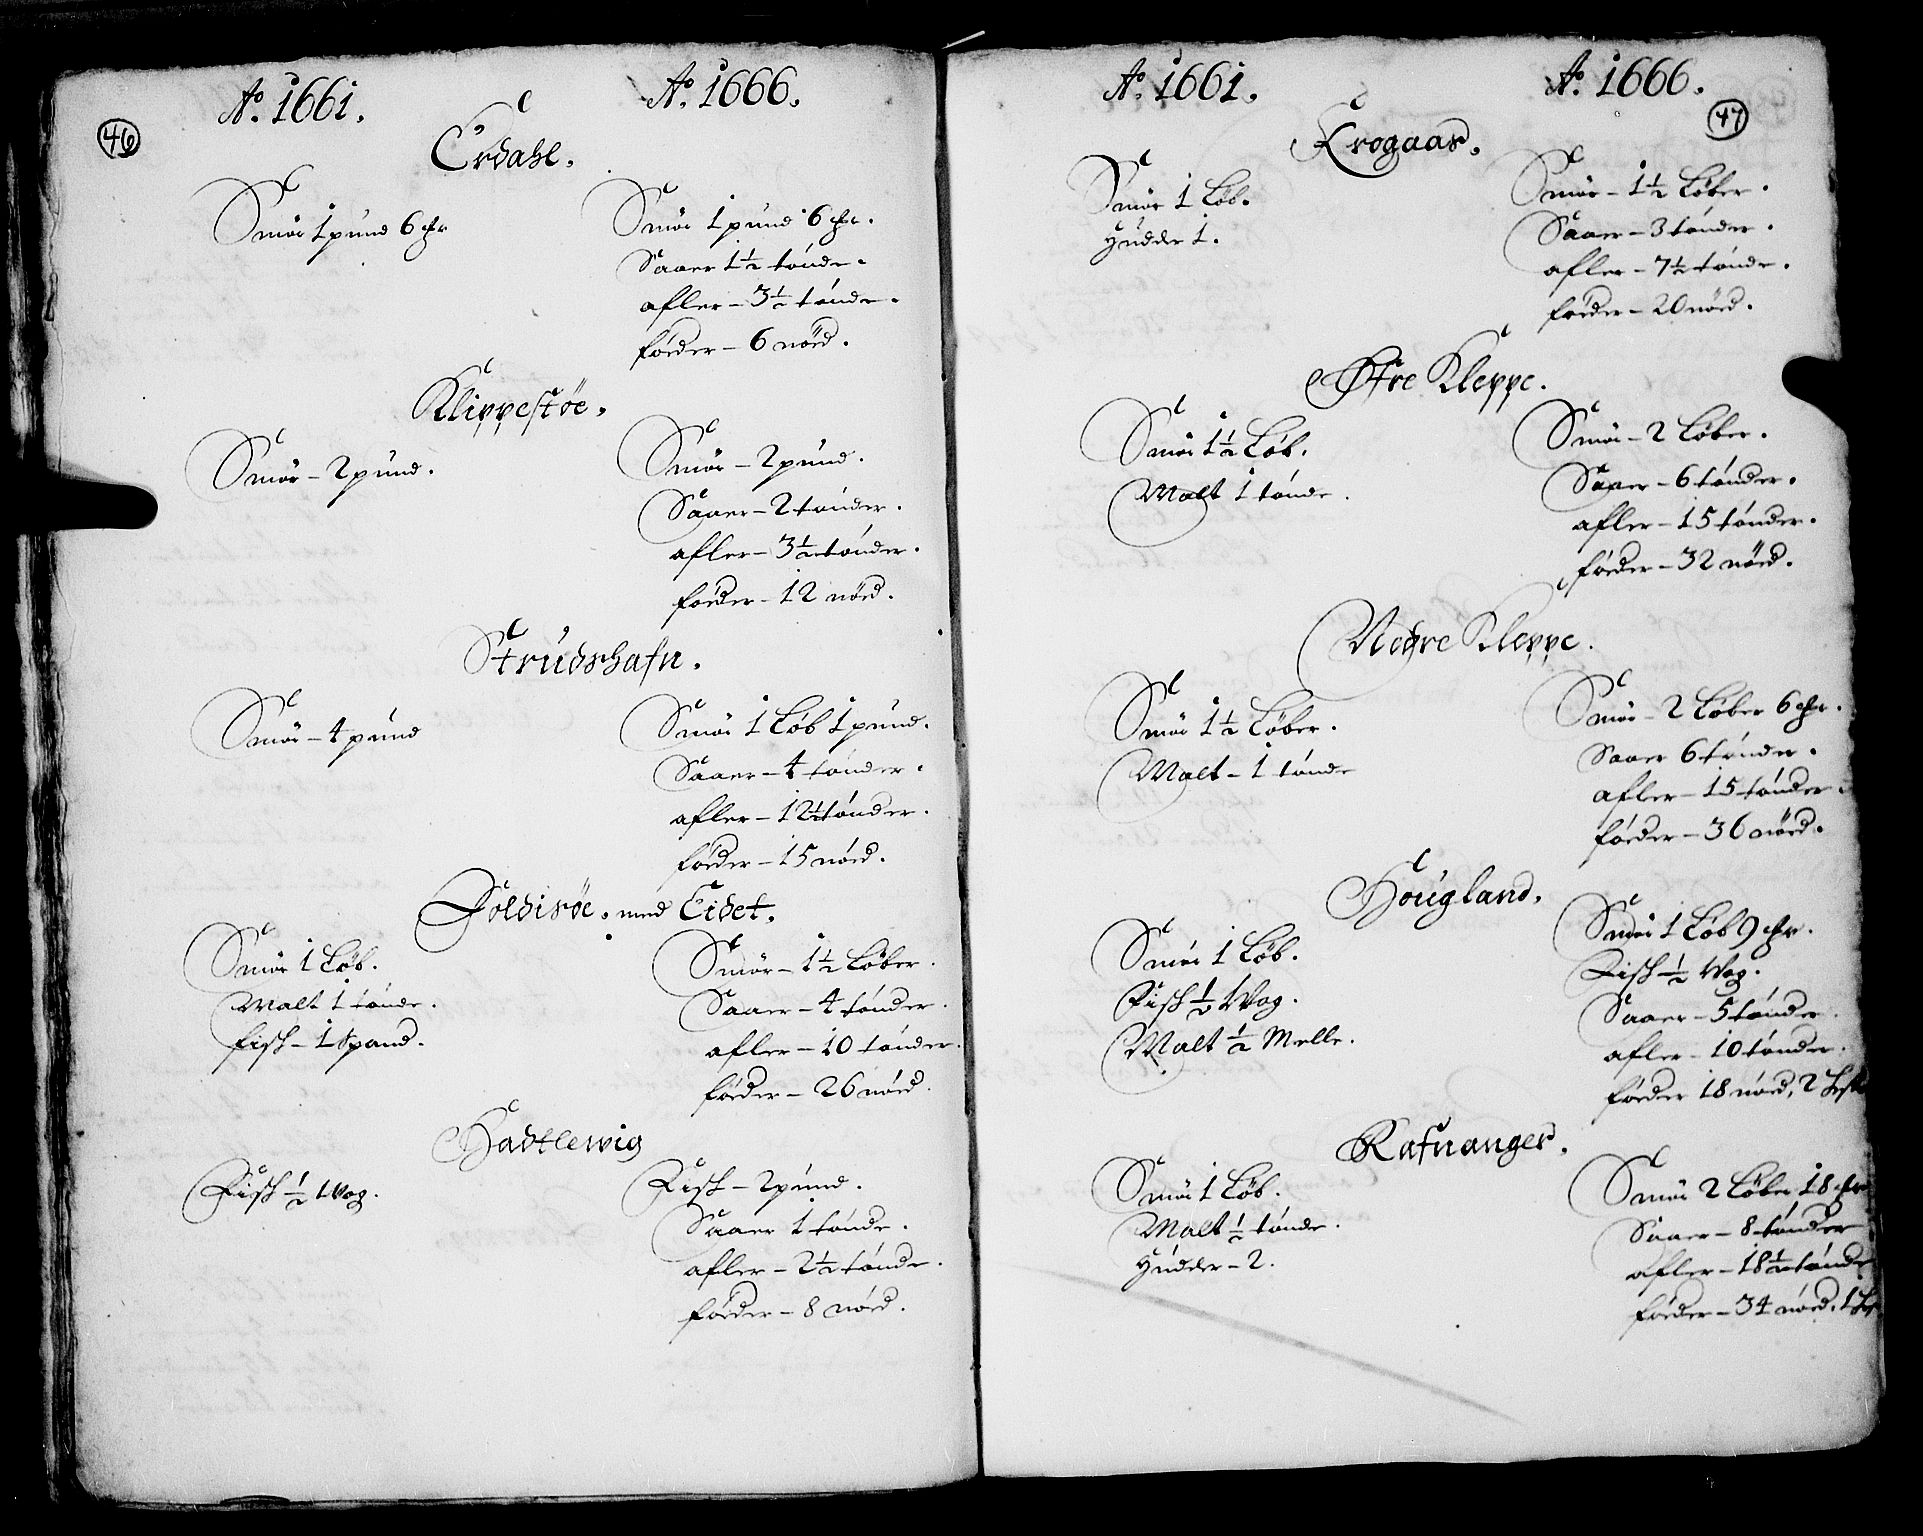 46
Ao. 1661. Ao. 1666.
Erdahl.
Smör 1 pund 6 mr
Smör 1 pund 6 mr.
Saaer 1½ tönde.
afler – 3½ tönde.
föeder – 6 nöed.
Klippestöe.
Smör – 2 pund.
Smör – 2 pund.
Saaer – 2 tönder.
afler – 3½ tönder.
föeder – 12 nöed.
Strudshafn.
Smör – 4 pund
Smör 1 Löb 1 pund.
Saaer – 4 tönder.
afler – 12½ tönder.
föeder – 15 nöed.
Joldisöe. med Eidet.
Smör 1 Löb.
Malt 1 tönde.
fisk – 1 Spand.
Smör – 1½ Löber.
Saaer – 4 tönder.
afler – 10 tönder.
föeder – 26 nöed.
Hadtlewig
Fisk ½ Wog.
Fisk – 2 pund.
Saaer 1 tönde.
afler – 2½ tönde.
föeder – 8 nöed.
47
Ao. 1661. Ao. 1666.
Krogaas.
Smör 1 Löb.
Hudde 1.
Smör – 1½ Löber.
Saaer – 3 tönder.
afler – 7½ tönde.
föeder – 20 nöed.
Øfre Kleppe.
Smör 1½ Löb.
Malt 1 tönde.
Smör – 2 Löber.
Saaer – 6 tönder.
afler – 15 tönder.
föeder – 32 nöed.
Nedre Kleppe.
Smör 1½ Löber.
Malt – 1 tönde
Smör – 2 Löber 6 mr.
Saaer 6 tönder.
afler – 15 tönder.
föeder – 36 nöed.
Hougland.
Smör 1 Löb.
Fisk ½ Wog.
Malt ½ Melle.
Smör 1 Löb 9 mr.
Fisk ½ Wog.
Saaer – 5 tönder.
afler – 10 tönder.
föeder 18 nöed, 2
Rafnanger.
Smör 1 Löb.
Malt ½ tönde.
Hudder – 2.
Smör 2 Löber 18 mr
Saaer – 8 tönder
afler – 18½ tönde
föeder – 34 nöed. 1